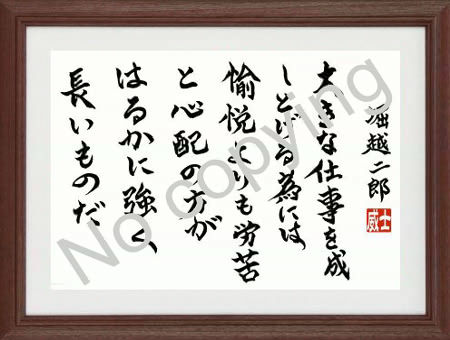 堀越二郎
大きな仕事を成
しとげる為には
愉悦よりも労苦
と心配の方が
はるかに強く、
長いものだ
威士
No copying